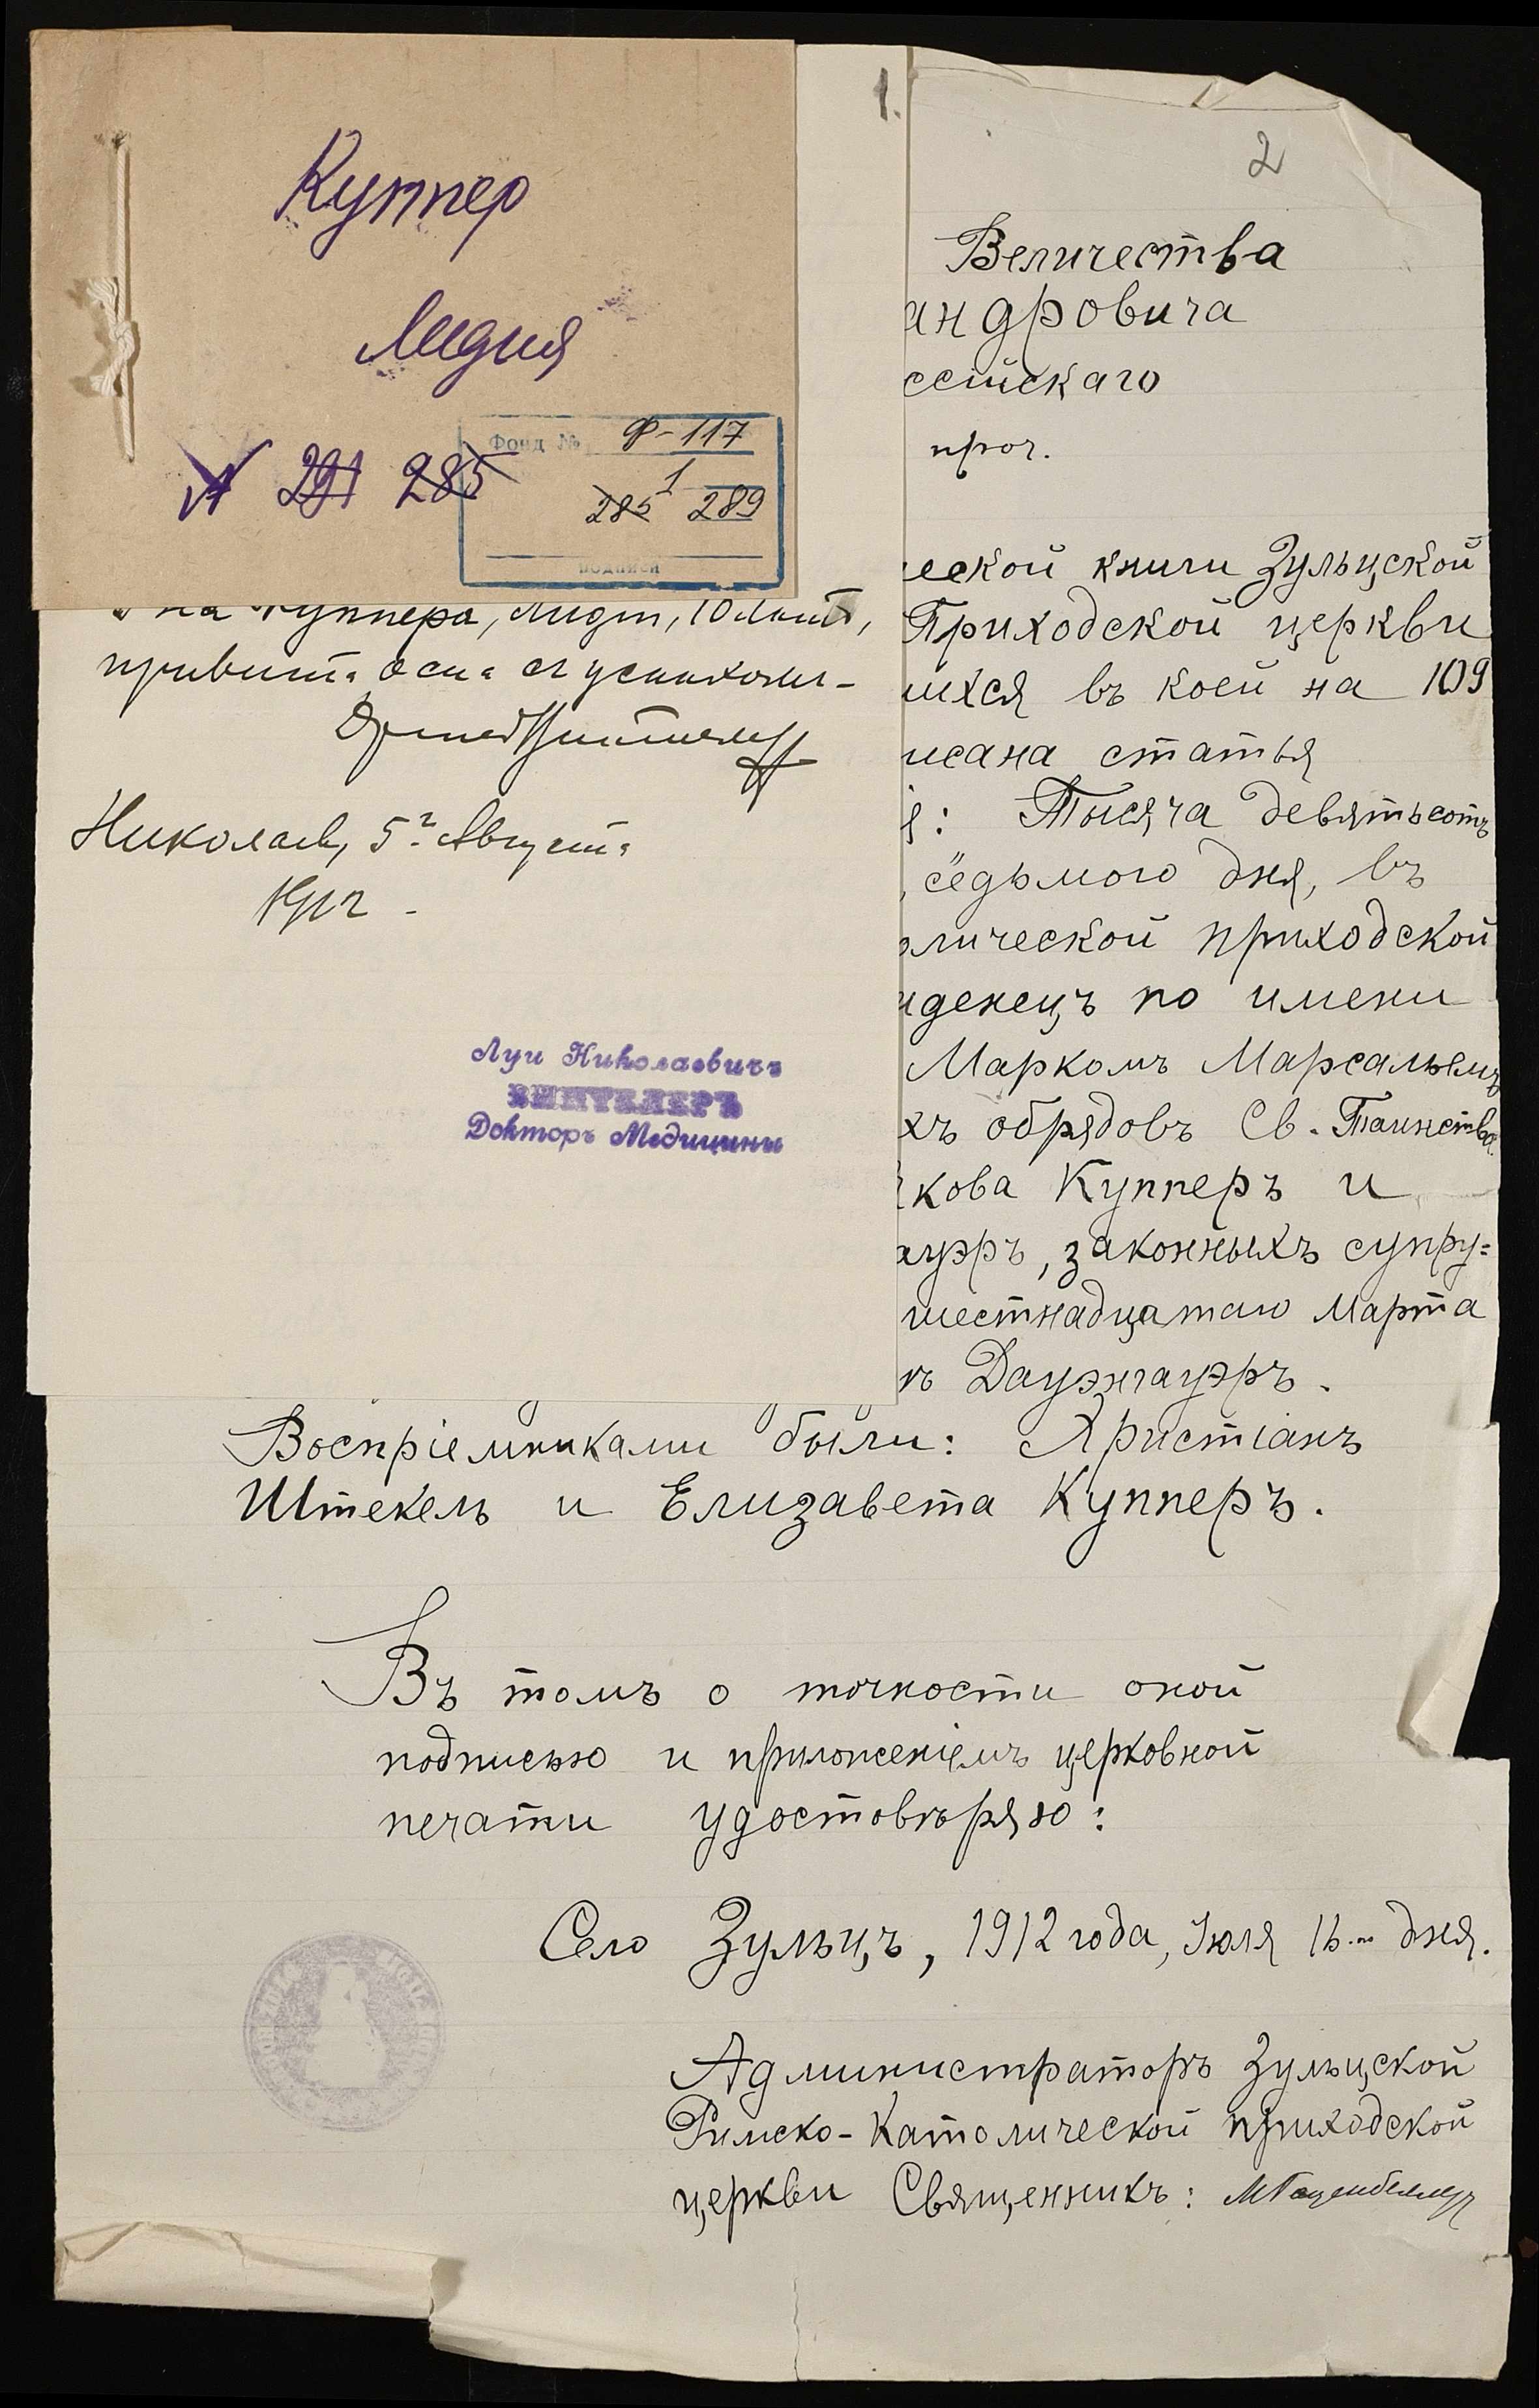 Куппер
Лидия
291 285
Фонд № Ф-117
1
285 289
подписи
1.
на Куппера, Лидии, 10 лет,
привита оспа с успехом -
Николаев, 5го Августа
1912 -
Луи Николаевичъ
ВИНТЕЛЕРЪ
Докторъ Медицины
2
Величества
андровича
ссійскаго
проч.
еской книги Зульцской
Приходской церкви
шихся въ коей на 109
исана статья
: Тысяча девятьсотъ
, седьмого дня, въ
олической приходской
аденецъ по имени
Маркомъ Марсальемъ
хъ обрядовъ Св. Таинства
кова Купперъ и
ауэръ, законныхъ супру=
шестнадцатаго Марта
ъ Дауэнгауэръ.
Воспріемниками были: Христіанъ
Штекель и Елизавета Купперъ.
Въ томъ о точности оной
подписью и приложеніемъ церковной
печати удостовѣряю:
Село Зульцъ, 1912 года, Іюля 16-го дня.
Администраторъ Зульцской
Римско-Католической приходской
церкви Священникъ: